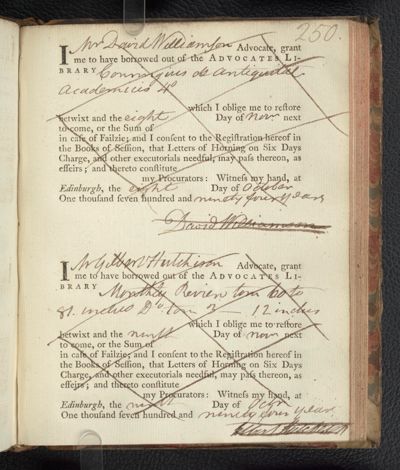 250.
I Mr David Williamson Advocate, grant
me to have borrowed out of the ADVOCATES LI-
BRARY Conringius de antiquitat
Academicis 4º
which I oblige me to reſtore
betwixt and the eight Day of Nov next
to come, or the Sum of
in caſe of Failzie; and I conſent to the Regiſtration hereof in
the Books of Seſſion, that Letters of Horning on Six Days
Charge, and other executorials needful, may paſs thereon, as
effeirs; and thereto conſtitute
my Procurators: Witneſs my hand, at
Edinburgh, the eight Day of October
One thouſand ſeven hundred and ninety four years
David Williamson
I Mr Gilbert Hutchison Advocate, grant
me to have borrowed out of the ADVOCATES LI-
BRARY Monthly Review tom 60 to
81. inclus Dº tom 2 12 inclus
which I oblige me to reſtore
betwixt and the ninth Day of nov next
to come, or the Sum of
in caſe of Failzie; and I conſent to the Regiſtration hereof in
the Books of Seſſion, that Letters of Horning on Six Days
Charge, and other executorials needful, may paſs thereon, as
effeirs; and thereto conſtitute
my Procurators: Witneſs my hand, at
Edinburgh, the ninth Day of Octr
One thouſand ſeven hundred and ninety four years